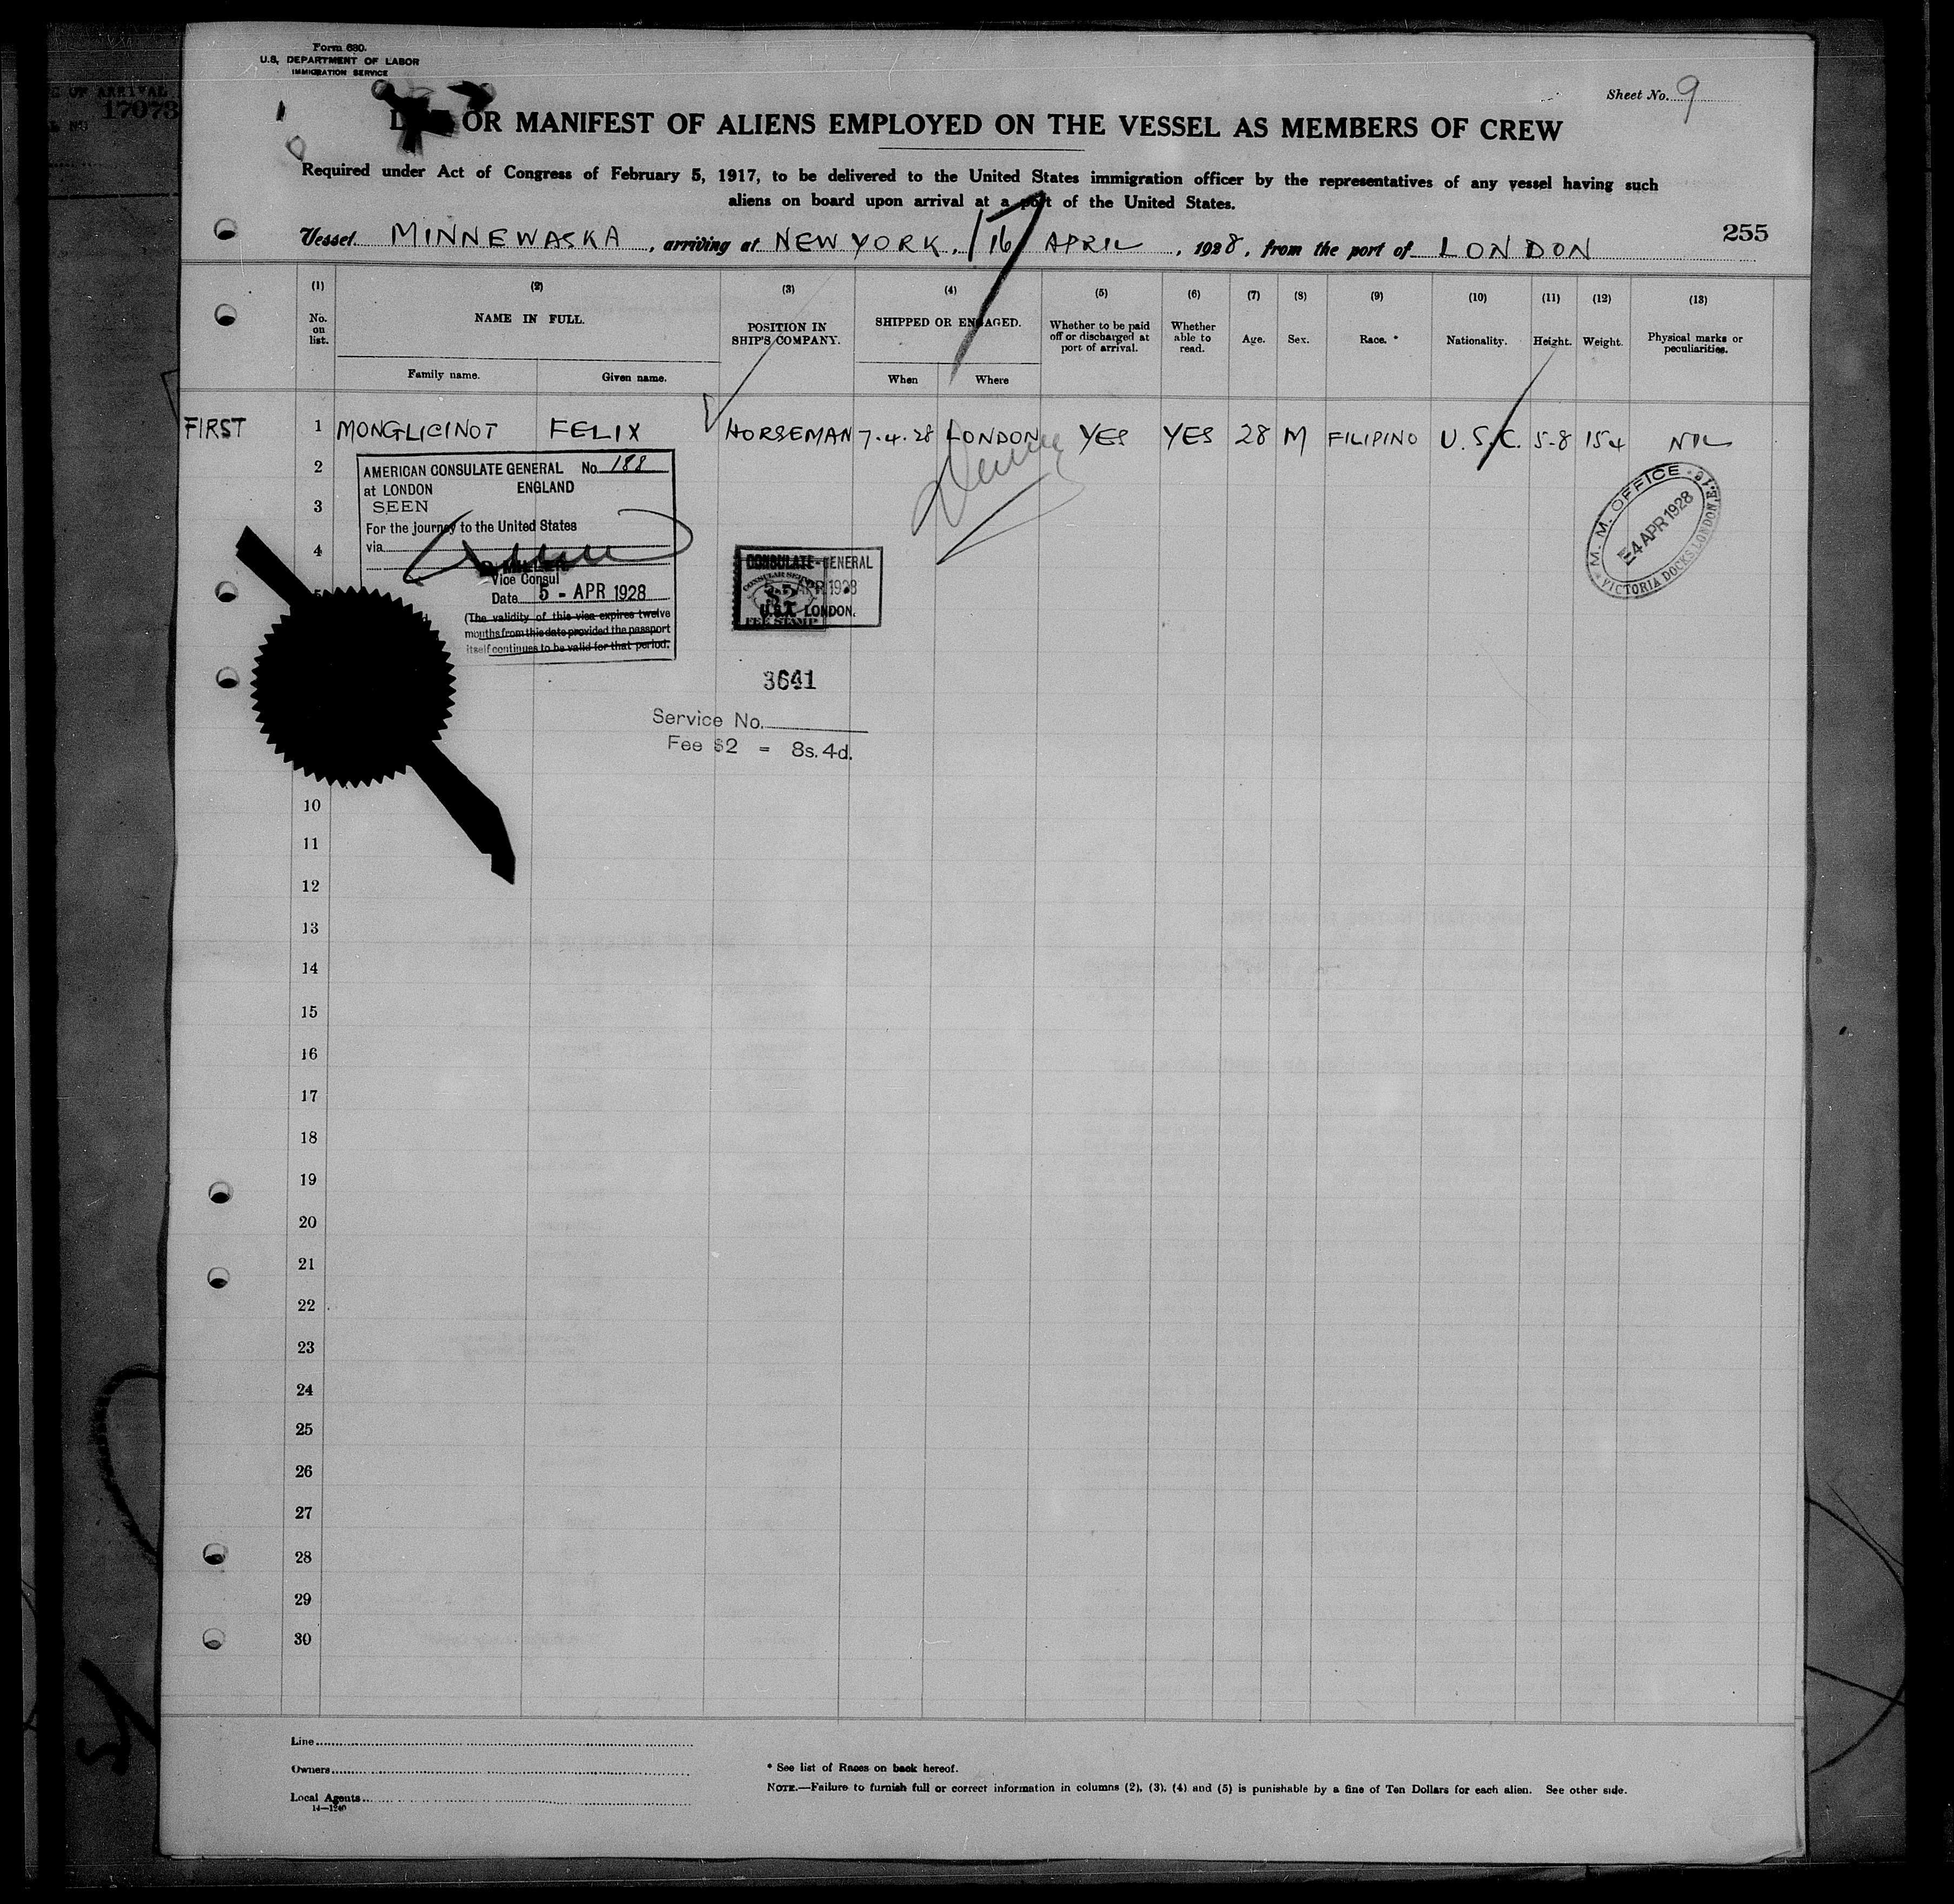 E OF ARRIVAL
17073
Form 680.
U.S. DEPARTMENT OF LABOR
IMMIGRATION SERVICE
Sheet No. 9
OR MANIFEST OF ALIENS EMPLOYED ON THE VESSEL AS MEMBERS OF CREW
Required under Act of Congress of February 5, 1917, to be delivered to the United States immigration officer by the representatives of any vessel having such
aliens on board upon arrival at a port of the United States.
255
Vessel MINNEWASKA, arriving at NEW YORK, 16 APRIL, 1928, from the port of LONDON
(1) (2) (3) (4) (5) (6) (7) (8) (9) (10) (11) (12) (13)
No. on list.
NAME IN FULL.
Family name. Given name.
POSITION IN SHIP'S COMPANY.
SHIPPED OR ENGAGED.
When Where
Whether to be paid off or discharged at port of arrival.
Whether able to read.
Age. Sex. Race. * Nationality. Height. Weight.
Physical marks or peculiarities.
FIRST 1 MONGLICINOT FELIX HORSEMAN 7.4.28 LONDON YES YES 28 M FILIPINO U.S.C. 5-8 154 NIL
2
3
4
5
AMERICAN CONSULATE GENERAL No. 188
at LONDON ENGLAND
SEEN
For the journey to the United States
via
Vice Consul
Date 5 - APR 1928
(The validity of this visa expires twelve
months from this date provided the passport
itself continues to be valid for that period.
CONSULATE-GENERAL
CONSULAR SERVICE
$2
APR 1928
U.S.A. LONDON.
FEE STAMP
M. M. OFFICE
4 APR 1928
VICTORIA DOCKS, LONDON, E.16
3641
Service No.
Fee $2 = 8s. 4d.
10
11
12
13
14
15
16
17
18
19
20
21
22
23
24
25
26
27
28
29
30
Line
Owners
Local Agents
14—1240
* See list of Races on back hereof.
NOTE.—Failure to furnish full or correct information in columns (2), (3), (4) and (5) is punishable by a fine of Ten Dollars for each alien. See other side.